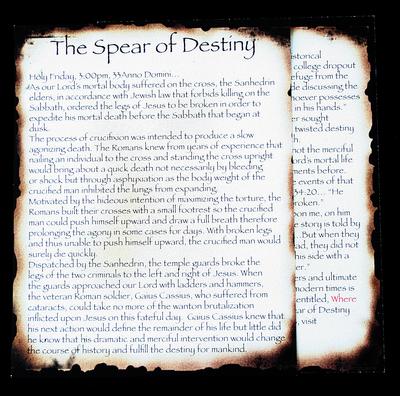 The Spear of Destiny
Holy Friday, 3:00pm, 33Anno Domini...
As our Lord's mortal body suffered on the cross, the Sanhedrin
elders, in accordance with Jewish law that forbids killing on the
Sabbath, ordered the legs of Jesus to be broken in order to
expedite his mortal death before the Sabbath that began at
dusk.
The process of crucifixion was intended to produce a slow
agonizing death. The Romans knew from years of experience that
nailing an individual to the cross and standing the cross upright
would bring about a quick death not necessarily by bleeding
or shock, but through asphyxiation as the body weight of the
crucified man inhibited the lungs from expanding.
Motivated by the hideous intention of maximizing the torture, the
Romans built their crosses with a small footrest so the crucified
man could push himself upward and draw a full breath therefore
prolonging the agony in some cases for days. With broken legs
and thus unable to push himself upward, the crucified man would
surely die quickly.
Dispatched by the Sanhedrin, the temple guards broke the
legs of the two criminals to the left and right of Jesus. When
the guards approached our Lord with ladders and hammers,
the veteran Roman soldier, Gaius Cassius, who suffered from
cataracts, could take no more of the wanton brutalization
inflicted upon Jesus on this fateful day. Gaius Cassius knew that
his next action would define the remainder of his life but little did
he know that his dramatic and merciful intervention would change
the course of history and fulfill the destiny for mankind.
storical
college dropout
efuge from the
e discussing the
oever possesses
in his hands."
er sought
twisted destiny
th.
not the merciful
ord's mortal life
ments before.
e events of that
34:20... "He
roken."
on me, on him
e story is told by
...But when they
ad, they did not
his side with a
er."
ers and ultimate
modern times is
entitled, Where
ar of Destiny
, visit